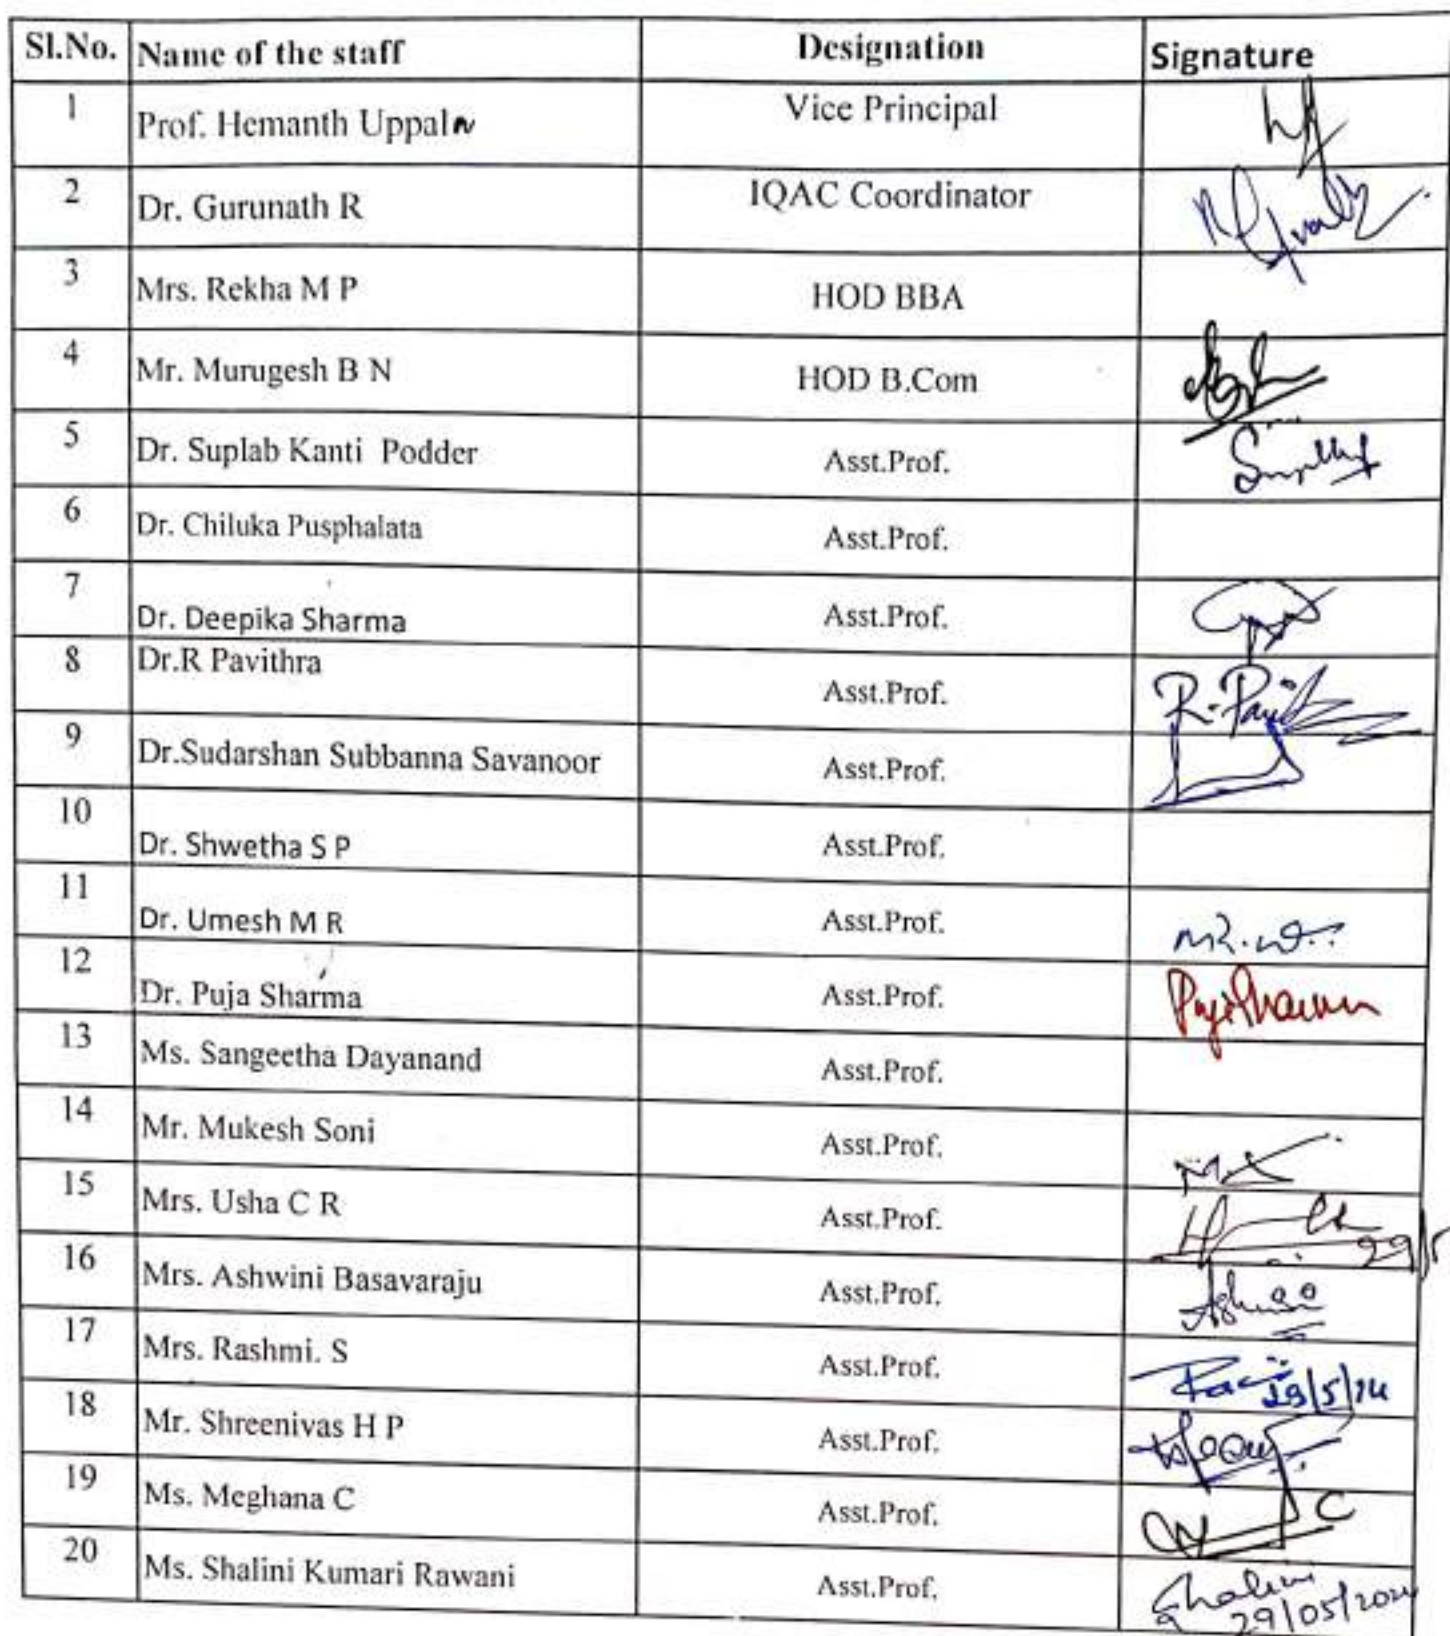 Sl.No. Name of the staff Designation Signature
1 Prof. Hemanth Uppaln Vice Principal
2 Dr. Gurunath R IQAC Coordinator
3 Mrs. Rekha M P HOD BBA
4 Mr. Murugesh B N HOD B.Com
5 Dr. Suplab Kanti Podder Asst.Prof.
6 Dr. Chiluka Pusphalata Asst.Prof.
7 Dr. Deepika Sharma Asst.Prof.
8 Dr.R Pavithra Asst.Prof.
9 Dr.Sudarshan Subbanna Savanoor Asst.Prof.
10 Dr. Shwetha S P Asst.Prof.
11 Dr. Umesh M R Asst.Prof.
12 Dr. Puja Sharma Asst.Prof.
13 Ms. Sangeetha Dayanand Asst.Prof.
14 Mr. Mukesh Soni Asst.Prof.
15 Mrs. Usha C R Asst.Prof. 29/5
16 Mrs. Ashwini Basavaraju Asst.Prof.
17 Mrs. Rashmi. S Asst.Prof. 29/5/24
18 Mr. Shreenivas H P Asst.Prof.
19 Ms. Meghana C Asst.Prof.
20 Ms. Shalini Kumari Rawani Asst.Prof. Shalini
29/05/2024